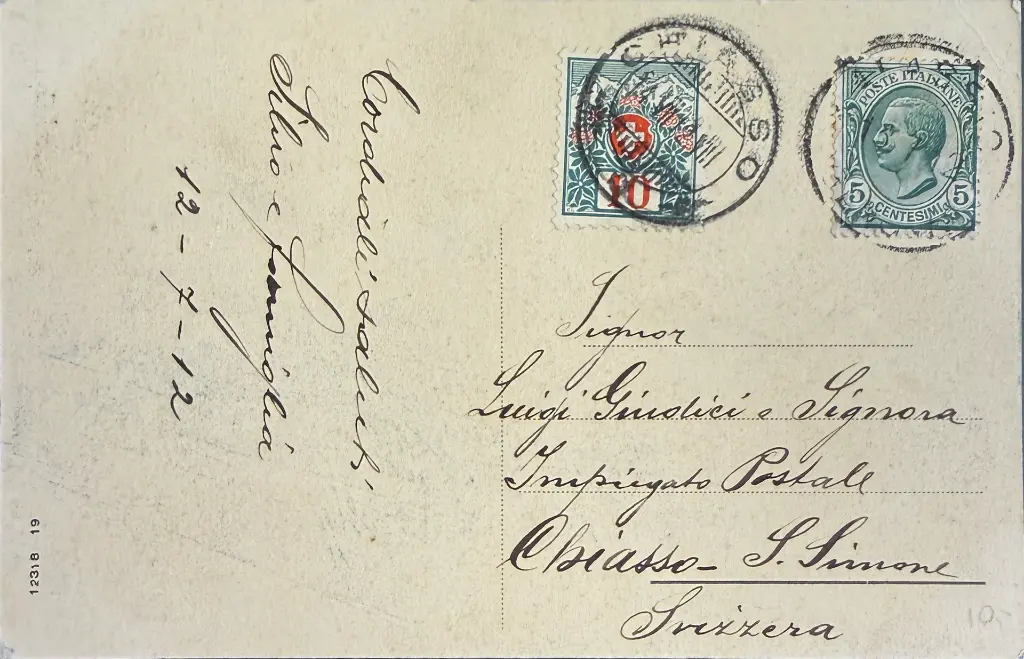 Cordiali saluti
Silvio e famiglia
12-7-12
12318 19
CHIASSO
10
POSTE ITALIANE
5 5
CENTESIMI
Signor
Luigi Giudici e Signora
Impiegato Postale
Chiasso - S. Simone
Svizzera
10.-